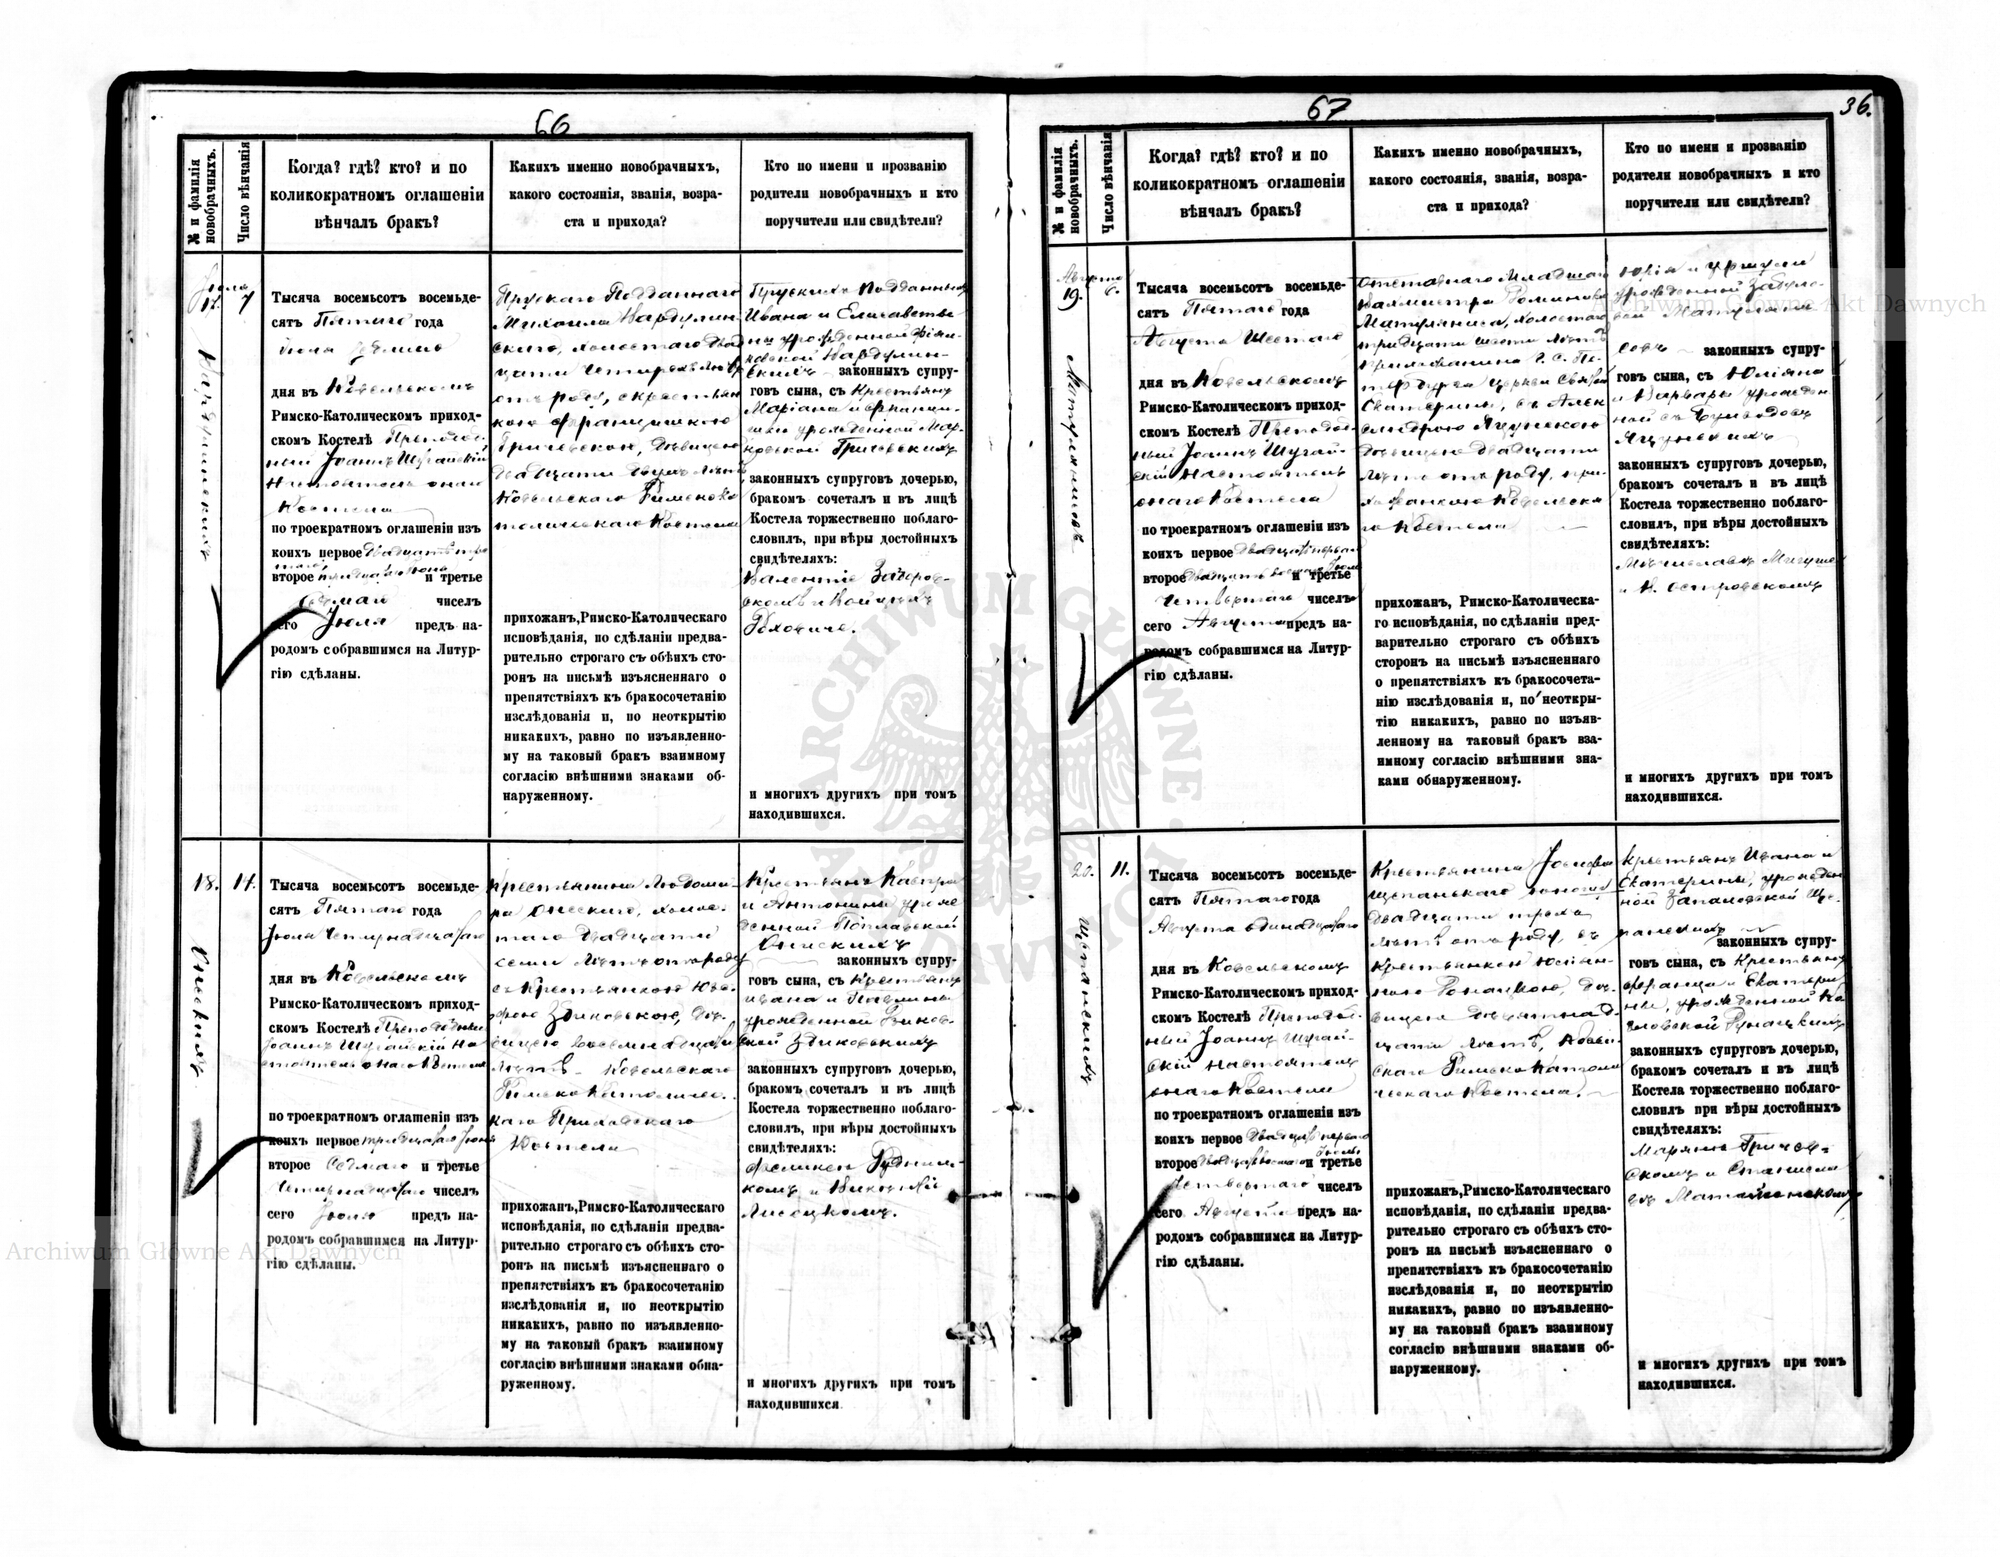 66
№ и фамилія новобрачныхъ.
Число вѣнчанія
Когда? гдѣ? кто? и по
коликократномъ оглашеніи
вѣнчалъ бракъ?
Какихъ именно новобрачныхъ,
какого состоянія, званія, возра-
ста и прихода?
Кто по имени и прозванію
родители новобрачныхъ и кто
поручители или свидѣтели?
Іюля
17. 7
Тысяча восемьсотъ восемьде-
сятъ Пятаго года
Іюля
дня въ Ковельскомъ
Римско-Католическомъ приход-
скомъ Костелѣ Преподоб-
ный Іоаннъ Шугайскій
Настоятель онаго
Костела
по троекратномъ оглашеніи изъ
коихъ первое
второе и третье
Седмаго чиселъ
сего Іюля предъ на-
родомъ собравшимся на Литур-
гію сдѣланы.
Прускаго Подданнаго
Михаила Нардулин-
скаго, холостаго двад-
цати четырехъ лѣтъ
отъ роду, с крестьян
кою Францишкою
Гричевскою, дѣвицею
двадцати двухъ лѣтъ
Ковельскаго Римскока-
толическаго Костела
прихожанъ, Римско-Католическаго
исповѣданія, по сдѣланіи предва-
рительно строгаго съ обѣихъ сто-
ронъ на письмѣ изъясненнаго о
препятствіяхъ къ бракосочетанію
изслѣдованія и, по неоткрытію
никакихъ, равно по изъявленно-
му на таковый бракъ взаимному
согласію внѣшними знаками об-
наруженному.
Прускихъ Подданныхъ
Ивана и Елисаветы
урожденной
Нардулин-
скихъ законныхъ супру-
говъ сына, съ Крестьянъ
Маріана и Францишки
урожденной Мар-
ковской Гричевскихъ
законныхъ супруговъ дочерью,
бракомъ сочеталъ и въ лицѣ
Костела торжественно поблаго-
словилъ, при вѣры достойныхъ
свидѣтеляхъ:
Валентіе
и
и многихъ другихъ при томъ
находившихся.
18. 14.
Онескихъ
Тысяча восемьсотъ восемьде-
сятъ Пятаго года
Іюля Четырнадцатаго
дня въ Ковельскомъ
Римско-Католическомъ приход-
скомъ Костелѣ Преподобный
Іоаннъ Шугайскій На-
стоятель онаго Костела
по троекратномъ оглашеніи изъ
коихъ первое тридцатаго Іюня
второе Седмаго и третье
Четырнадцатаго чиселъ
сего Іюля предъ на-
родомъ собравшимся на Литур-
гію сдѣланы.
Крестьянина Людоми-
ра Онескаго, холос-
таго двадцати
семи лѣтъ отъ роду
съ Крестьянкою Юзе-
фою Здиковскою, дѣ-
вицею восемнадцати
лѣтъ Ковельскаго
Римско Католичес-
каго Приходскаго
Костела
прихожанъ, Римско-Католическаго
исповѣданія, по сдѣланіи предва-
рительно строгаго съ обѣихъ сто-
ронъ на письмѣ изъясненнаго о
препятствіяхъ къ бракосочетанію
изслѣдованія и, по неоткрытію
никакихъ, равно по изъявленно-
му на таковый бракъ взаимному
согласію внѣшними знаками обна-
руженному.
Крестьянъ
и Антонины урож-
денной Поплавской
Онискихъ
законныхъ супру-
говъ сына, съ Крестьянъ
Ивана и Павлины
урожденной
Здиковскихъ
законныхъ супруговъ дочерью,
бракомъ сочеталъ и въ лицѣ
Костела торжественно поблаго-
словилъ, при вѣры достойныхъ
свидѣтеляхъ:
и
Лисецкомъ.
и многихъ другихъ при томъ
находившихся
67
36.
№ и фамилія новобрачныхъ.
Число вѣнчанія
Когда? гдѣ? кто? и по
коликократномъ оглашеніи
вѣнчалъ бракъ?
Какихъ именно новобрачныхъ,
какого состоянія, званія, возра-
ста и прихода?
Кто по имени и прозванію
родители новобрачныхъ и кто
поручители или свидѣтели?
Августа
19. 6.
Тысяча восемьсотъ восемьде-
сятъ Пятаго года
Августа Шестаго
дня въ Ковельскомъ
Римско-Католическомъ приход-
скомъ Костелѣ Преподоб-
ный Іоаннъ Шугай-
скій настоятель
онаго Костела
по троекратномъ оглашеніи изъ
коихъ первое двадцать перваго
второе двадцать восьмаго Іюля и третье
Четвертаго чиселъ
сего Августа предъ на-
родомъ собравшимся на Литур-
гію сдѣланы.
Отставнаго Младшаго
Доминика
холостаго
тридцати шести лѣтъ
прихожанина Г. С. Пе-
тербурга церкви Святой
Екатерины, съ Алек-
сандрою Яцунскою
дѣвицею двадцати
лѣтъ отъ роду, при-
хожанкою Ковельска-
го Костела
прихожанъ, Римско-Католическа-
го исповѣданія, по сдѣланіи пред-
варительно строгаго съ обѣихъ
сторонъ на письмѣ изъясненнаго
о препятствіяхъ къ бракосочета-
нію изслѣдованія и, по неоткры-
тію никакихъ, равно по изъяв-
ленному на таковый бракъ вза-
имному согласію внѣшними зна-
ками обнаруженному.
и Уршули
урожденной
законныхъ супру-
говъ сына, съ Юліяна
и Варвары урожден-
ной
Яцунскихъ
законныхъ супруговъ дочерью,
бракомъ сочеталъ и въ лицѣ
Костела торжественно поблаго-
словилъ, при вѣры достойныхъ
свидѣтеляхъ:
Мѣчиславѣ
и Островскомъ
и многихъ другихъ при томъ
находившихся.
20. 11.
Щепанскихъ
Тысяча восемьсотъ восемьде-
сятъ Пятаго года
Августа одинадцатаго
дня въ Ковельскомъ
Римско-Католическомъ приход-
скомъ Костелѣ Преподоб-
ный Іоаннъ Шугай-
скій настоятель
онаго Костела
по троекратномъ оглашеніи изъ
коихъ первое двадцать перваго
второе двадцать восьмаго Іюля и третье
Четвертаго чиселъ
сего Августа предъ на-
родомъ собравшимся на Литур-
гію сдѣланы.
Крестьянина Іосифа
Щепанскаго юношу
двадцати трехъ
лѣтъ отъ роду, съ
Крестьянкою Юліан-
ною Рунацкою, дѣ-
вицею девятнад-
цати лѣтъ, Ковель-
скаго Римско Католи-
ческаго Костела.
прихожанъ, Римско-Католическаго
исповѣданія, по сдѣланіи предва-
рительно строгаго съ обѣихъ сто-
ронъ на письмѣ изъясненнаго о
препятствіяхъ къ бракосочетанію
изслѣдованія и, по неоткрытію
никакихъ, равно по изъявленно-
му на таковый бракъ взаимному
согласію внѣшними знаками об-
наруженному.
Крестьянъ Ивана и
Екатерины, урожден-
ной Ще-
панскихъ
законныхъ супру-
говъ сына, съ Крестьянъ
Франца и Екатери-
ны, урожденной Ко-
зловской Рунацкихъ
законныхъ супруговъ дочерью,
бракомъ сочеталъ и въ лицѣ
Костела торжественно поблаго-
словилъ при вѣры достойныхъ
свидѣтеляхъ:
Маріянѣ Гричев-
скомъ и Станисла-
вѣ
и многихъ другихъ при томъ
находившихся.
ARCHIWUM GŁÓWNE AKT DAWNYCH
Archiwum Główne Akt Dawnych
Archiwum Główne Akt Dawnych